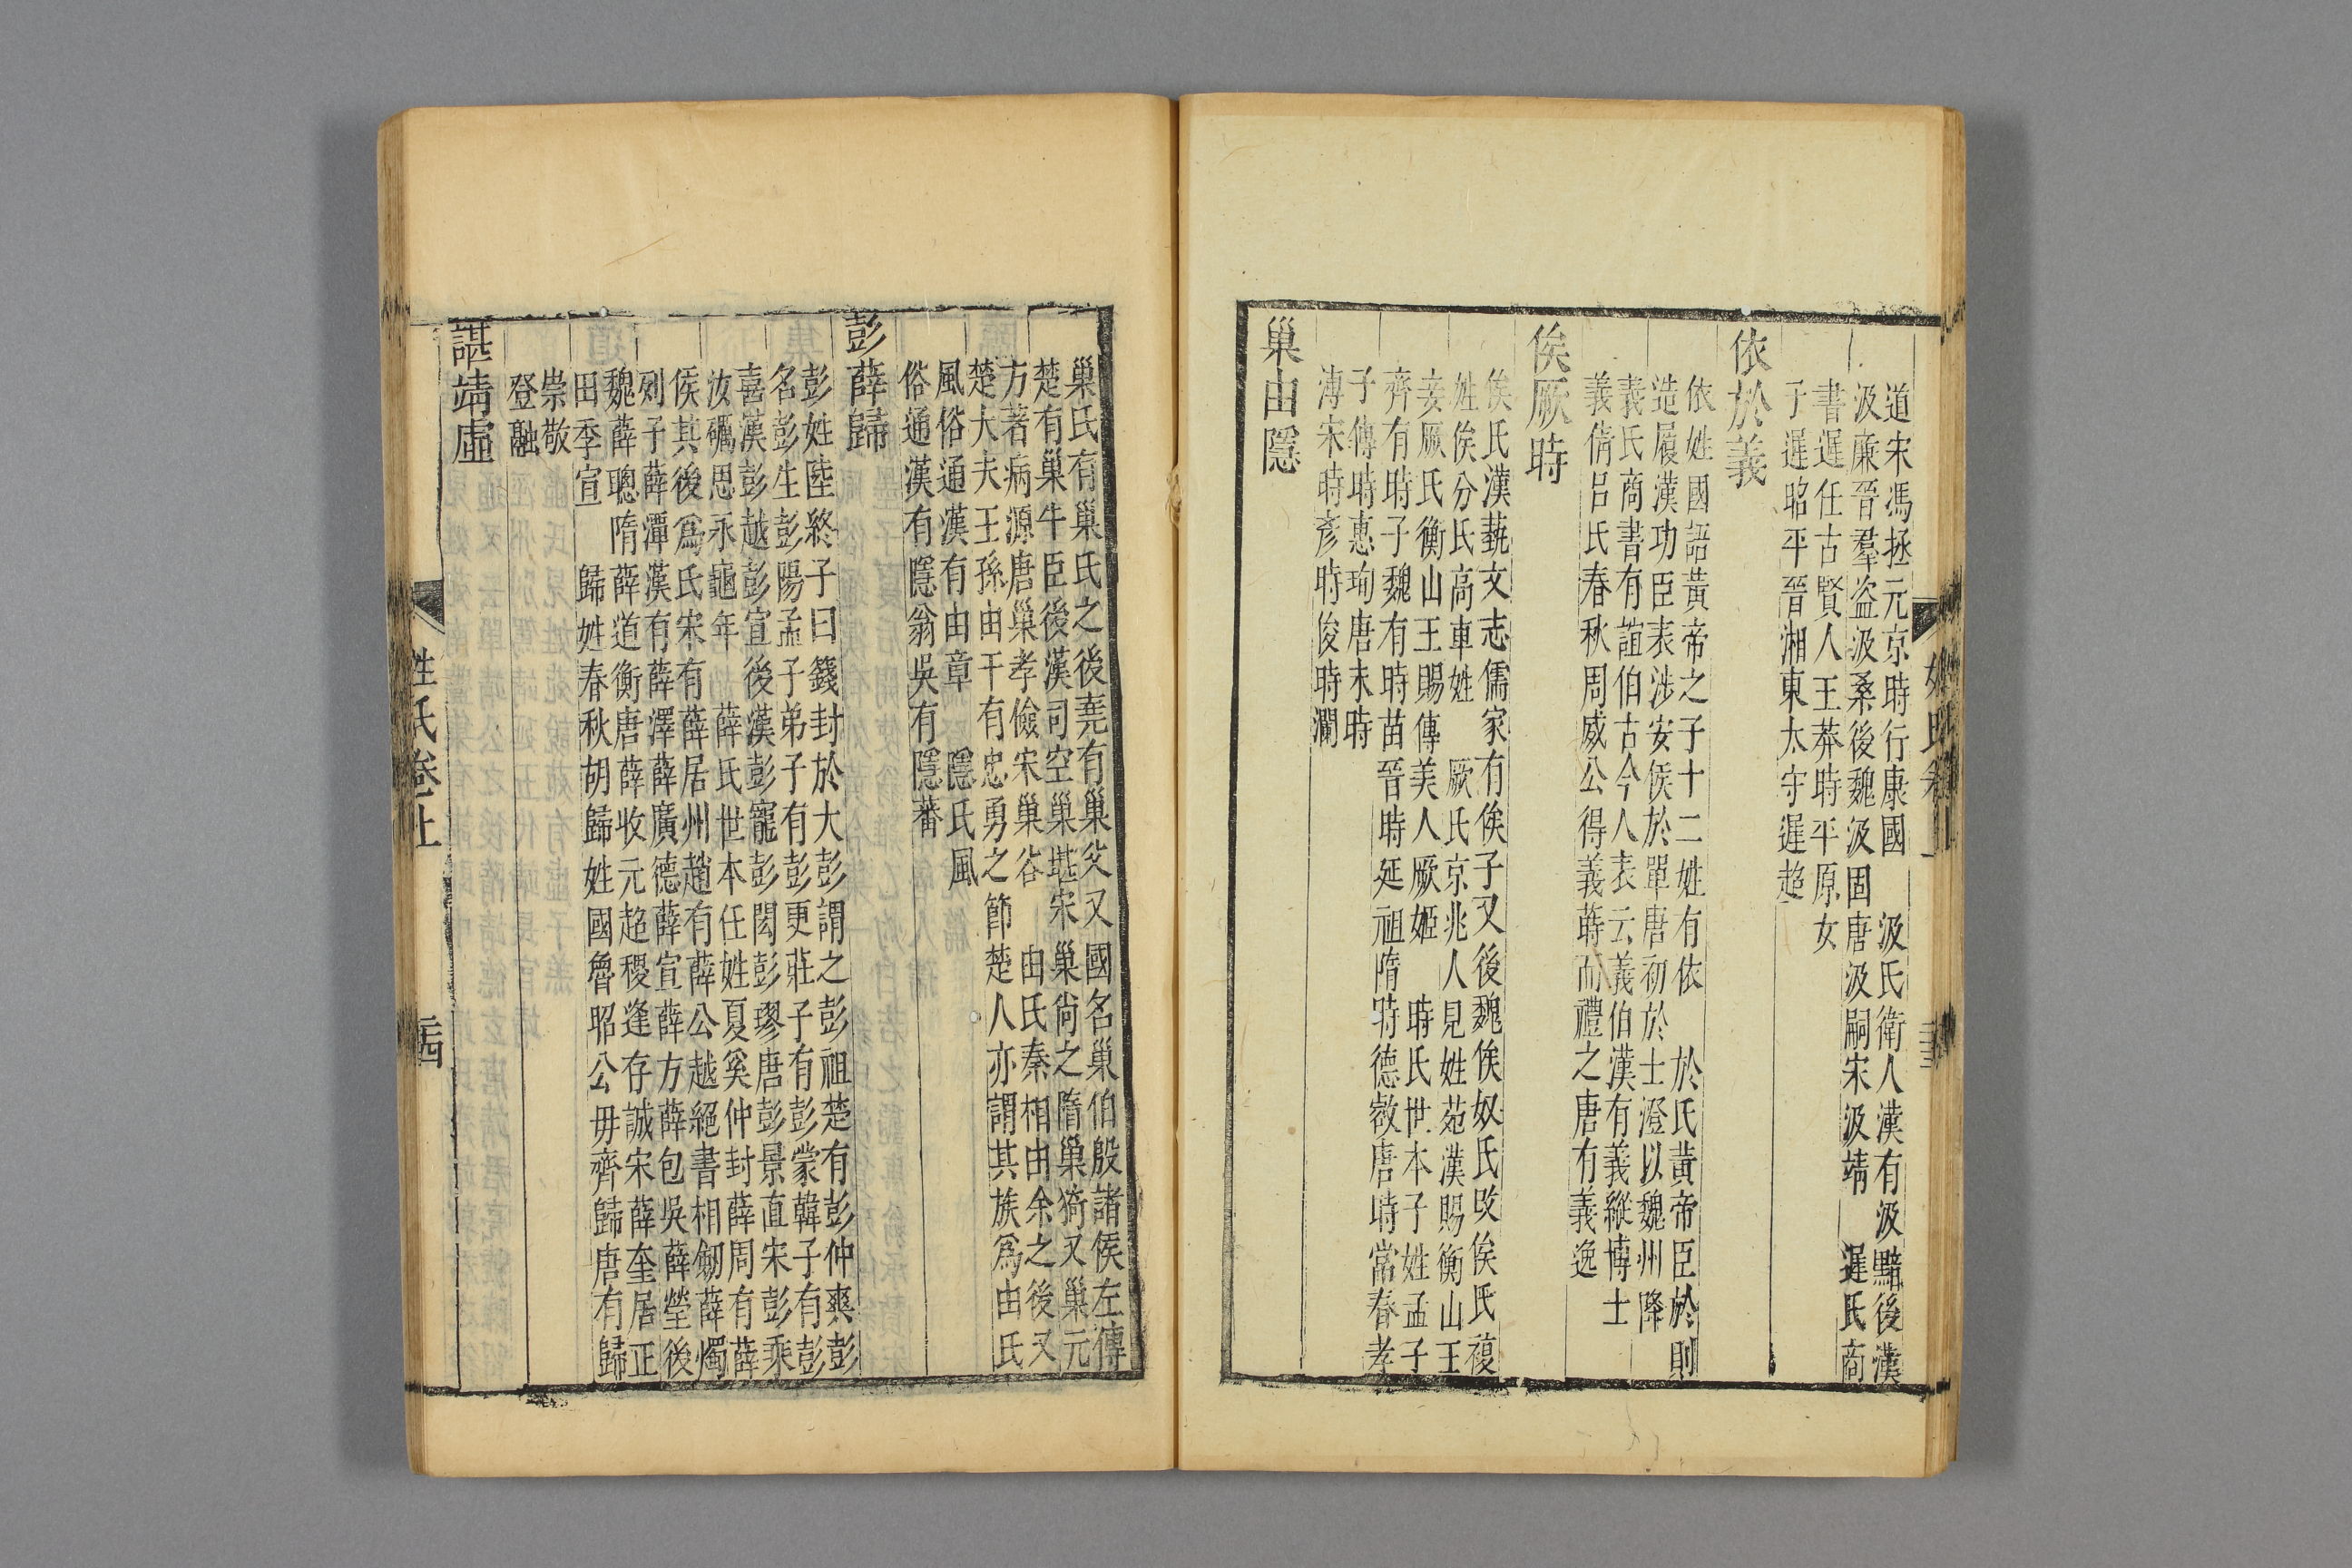 道宋馮拯元京時行康國　汲氏衛人漢有汲黯後漢
汲廉晉羣盜汲桑後魏汲固唐汲嗣宋汲靖　遲氏商
書遲任古賢人王莽時平原女
子遲昭平晉湘東太守遲超
依於義
依姓國語黃帝之子十二姓有依　於氏黃帝臣於則
造履漢功臣表涉安侯於單唐初於士澄以魏州降
義氏商書有誼伯古今人表云義伯漢有義縱博士
義倩呂氏春秋周威公得義蒔而禮之唐有義逸
俟厥時
俟氏漢藝文志儒家有俟子又後魏俟奴氏改俟氏複
姓俟分氏高車姓　厥氏京兆人見姓苑漢賜衡山王
妾厥氏衡山王賜傳美人厥姬　時氏世本子姓孟子
齊有時子魏有時苗晉時延祖隋時德叡唐時當春孝
子傳時惠珣唐末時
溥宋時彥時俊時瀾
巢由隱
姓氏卷上
巢氏有巢氏之後堯有巢父又國名巢伯殷諸侯左傳
楚有巢牛臣後漢司空巢堪宋巢尚之隋巢猗又巢元
方著病源唐巢孝儉宋巢谷　由氏秦相由余之後又
楚大夫王孫由于有忠勇之節楚人亦謂其族爲由氏
風俗通漢有由章　隱氏風
俗通漢有隱翁吳有隱蕃
彭薛歸
彭姓陸終子曰籛封於大彭謂之彭祖楚有彭仲爽彭
名彭生彭陽孟子弟子有彭更莊子有彭蒙韓子有彭
喜漢彭越彭宣後漢彭寵彭閎彭璆唐彭景直宋彭乘
汝礪思永龜年　薛氏世本任姓夏奚仲封薛周有薛
侯其後爲氏宋有薛居州趙有薛公越絕書相劒薛燭
列子薛潭漢有薛澤薛廣德薛宣薛方薛包吳薛瑩後
魏薛聰隋薛道衡唐薛收元超稷逢存誠宋薛奎居正
田季宣　歸姓春秋胡歸姓國魯昭公毋齊歸唐有歸
崇敬
登融
諶靖虛
姓氏卷上